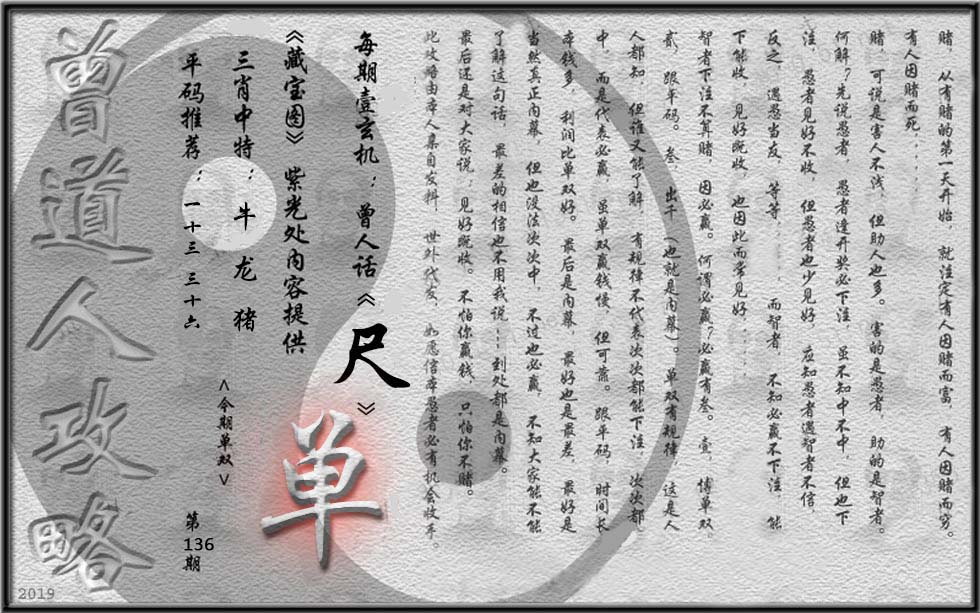 赌，从有赌的第一天开始，就注定有人因赌而富，有人因赌而穷。
有人因赌而死．．．．．
赌，可说是害人不浅，但助人也多。害的是愚者，助的是智者。
何解？先说愚者，愚者逢开奖必下注，虽不知中不中，但也下
注，愚者见好不收，但愚者也少见好，应知愚者遇智者不信，
反之，遇愁当友，等等．．．．．而智者，不知必赢不下注，能
下能收，见好既收，也因此而常见好．．．．．
智者下注不算赌，因必赢。何谓必赢？必赢有叁。壹，博单双，
贰，跟平码。叁，出千（也就是内幕）。单双有规律，这是人
人都知，但谁又能了解，有规律不代表次次都能下注，次次都
中，而是代表必赢，虽单双赢钱慢，但可靠。跟平码，时间长，
本钱多，利润比单双好。最后是内幕，最好也是最差，最好是
当然真正内幕，但也没法次次中，不过也必赢，不知大家能不能
了解这句话，最差的相信也不用我说┅到处都是内幕。
最后还是对大家说；见好既收。不怕你赢钱，只怕你不赌。
此攻略由本人集自发料，世外代友，如愿信本愚者必有机会收手。
每期壹玄机：曾人话《尺》
《藏宝图》紫光处内容提供
单
三肖中特：牛 龙 猪
<今期单双>
平码推荐：一十三 三十六
第136期
曾道人攻略
2019